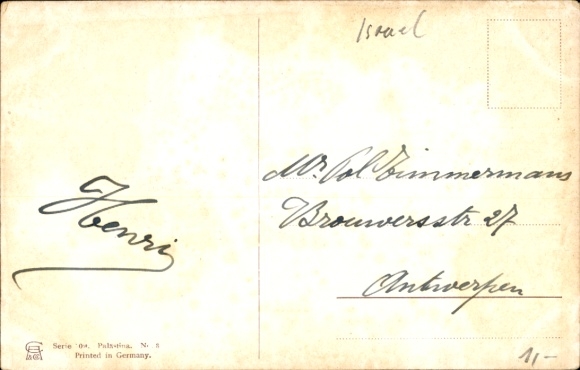 Israel
Mr. Pol Timmermans
Brouwersstr 27
Antwerpen
Henri
Palästina. No 8
Printed in Germany.
1,-